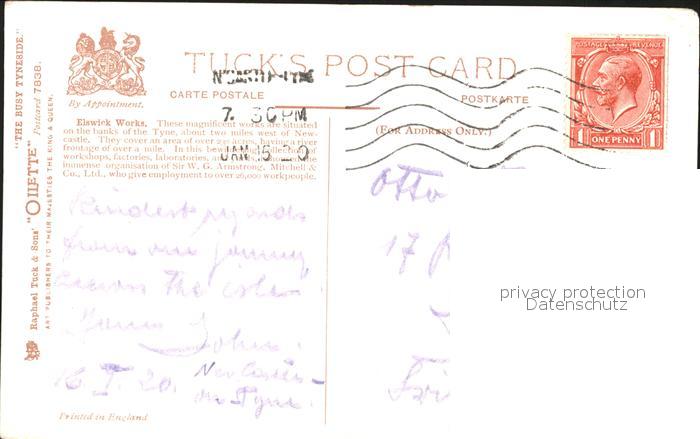 "THE BUSY TYNESIDE."
Raphael Tuck & Sons' "OILETTE" Postcard 7838.
ART PUBLISHERS TO THEIR MAJESTIES THE KING & QUEEN.
By Appointment.
TUCK'S POST CARD
CARTE POSTALE
POSTKARTE
7. 30 PM
JAN 15 20
(FOR ADDRESS ONLY.)
POSTAGE REVENUE
1 ONE PENNY 1
Elswick Works. These magnificent works are situated
on the banks of the Tyne, about two miles west of New-
castle. They cover an area of over 230 acres, having a river
frontage of over a mile. In this
workshops, factories, laboratories,
immense organisation of Sir W. G. Armstrong, Mitchell &
Co., Ltd., who give employment to over 26,000 workpeople.
Kindest regards
from our journey
across the isle
Yours John.
16.I.20. New Castle-
on Tyne.
Otto
17
privacy protection
Datenschutz
Printed in England